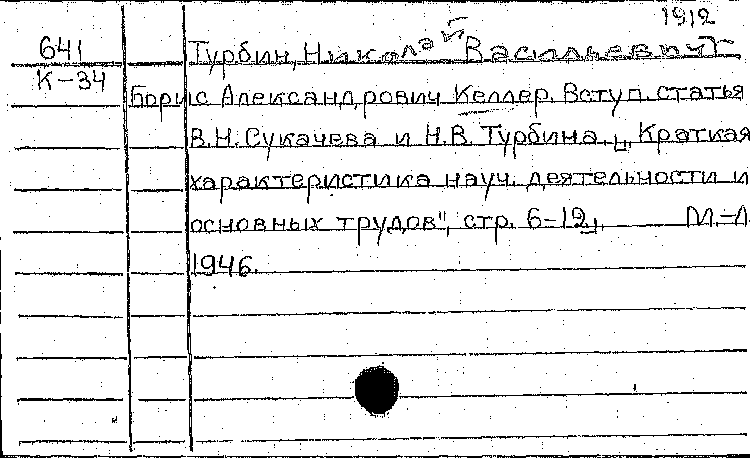 1912
641 Турбин, Николай Васильевич
К-34
Борис Александрович Келлер. Вступ. статья
В.Н. Сукачева и Н.В. Турбина. „Краткая
характеристика науч. деятельности и
основных трудов", стр. 6-12. М.-Л
1946.